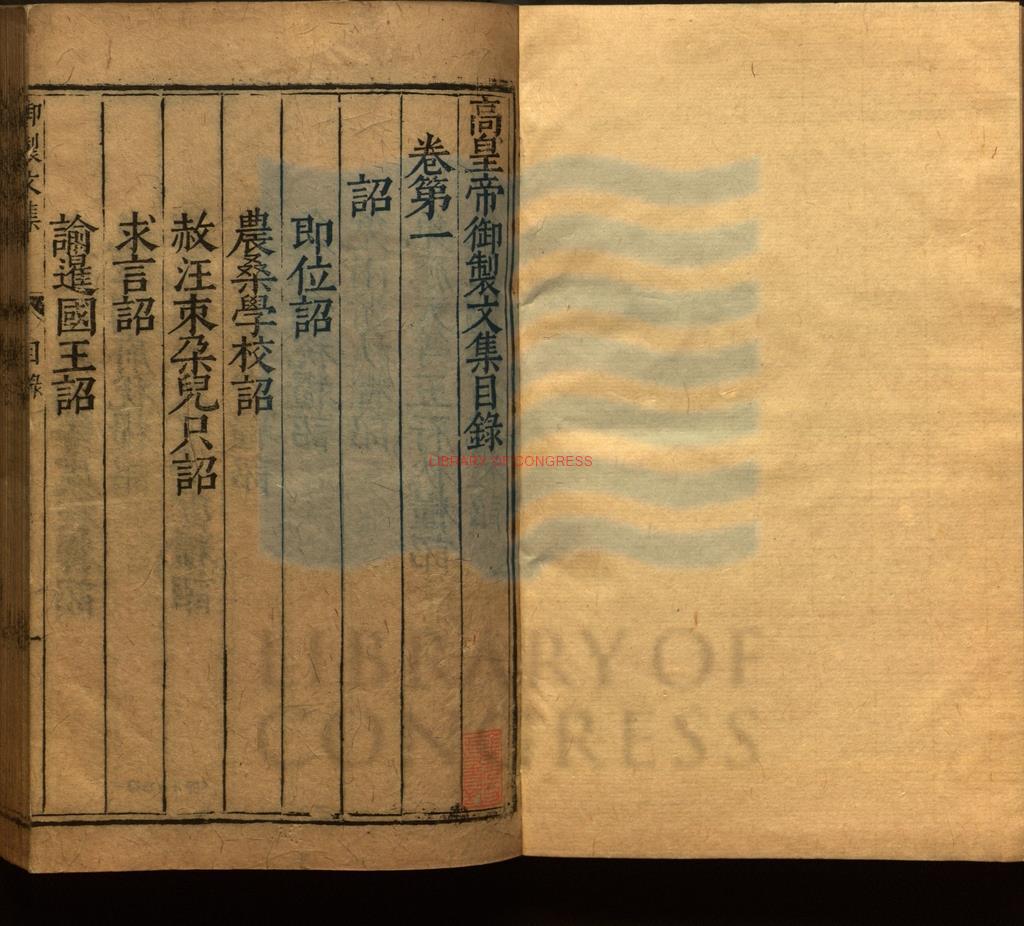 高皇帝御製文集目錄
卷第一
詔
即位詔
農桑學校詔
赦汪朿朶兒只詔
求言詔
諭暹國王詔
御製文集
目錄
一
LIBRARY OF CONGRESS
LIBRARY OF
CONGRESS